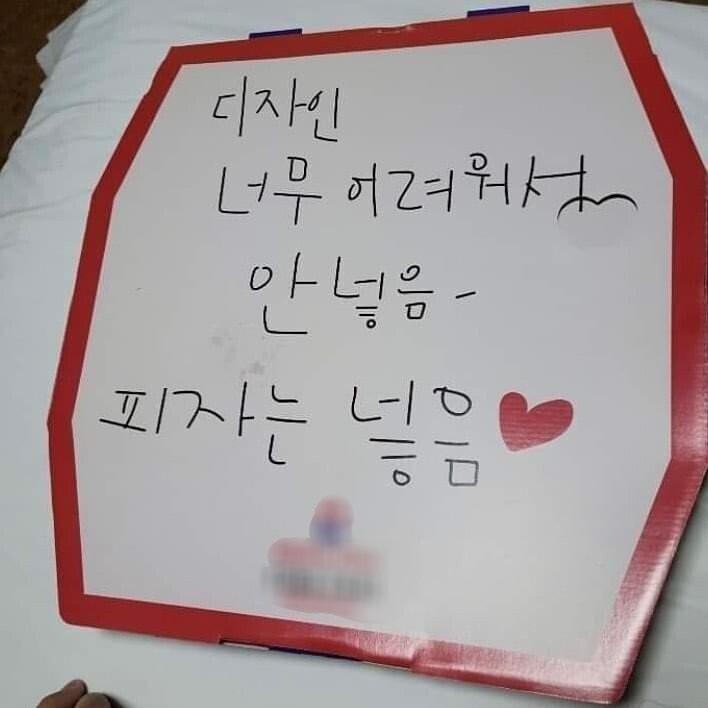 디자인
너무 어려워서
안 넣음-
피자는 넣음